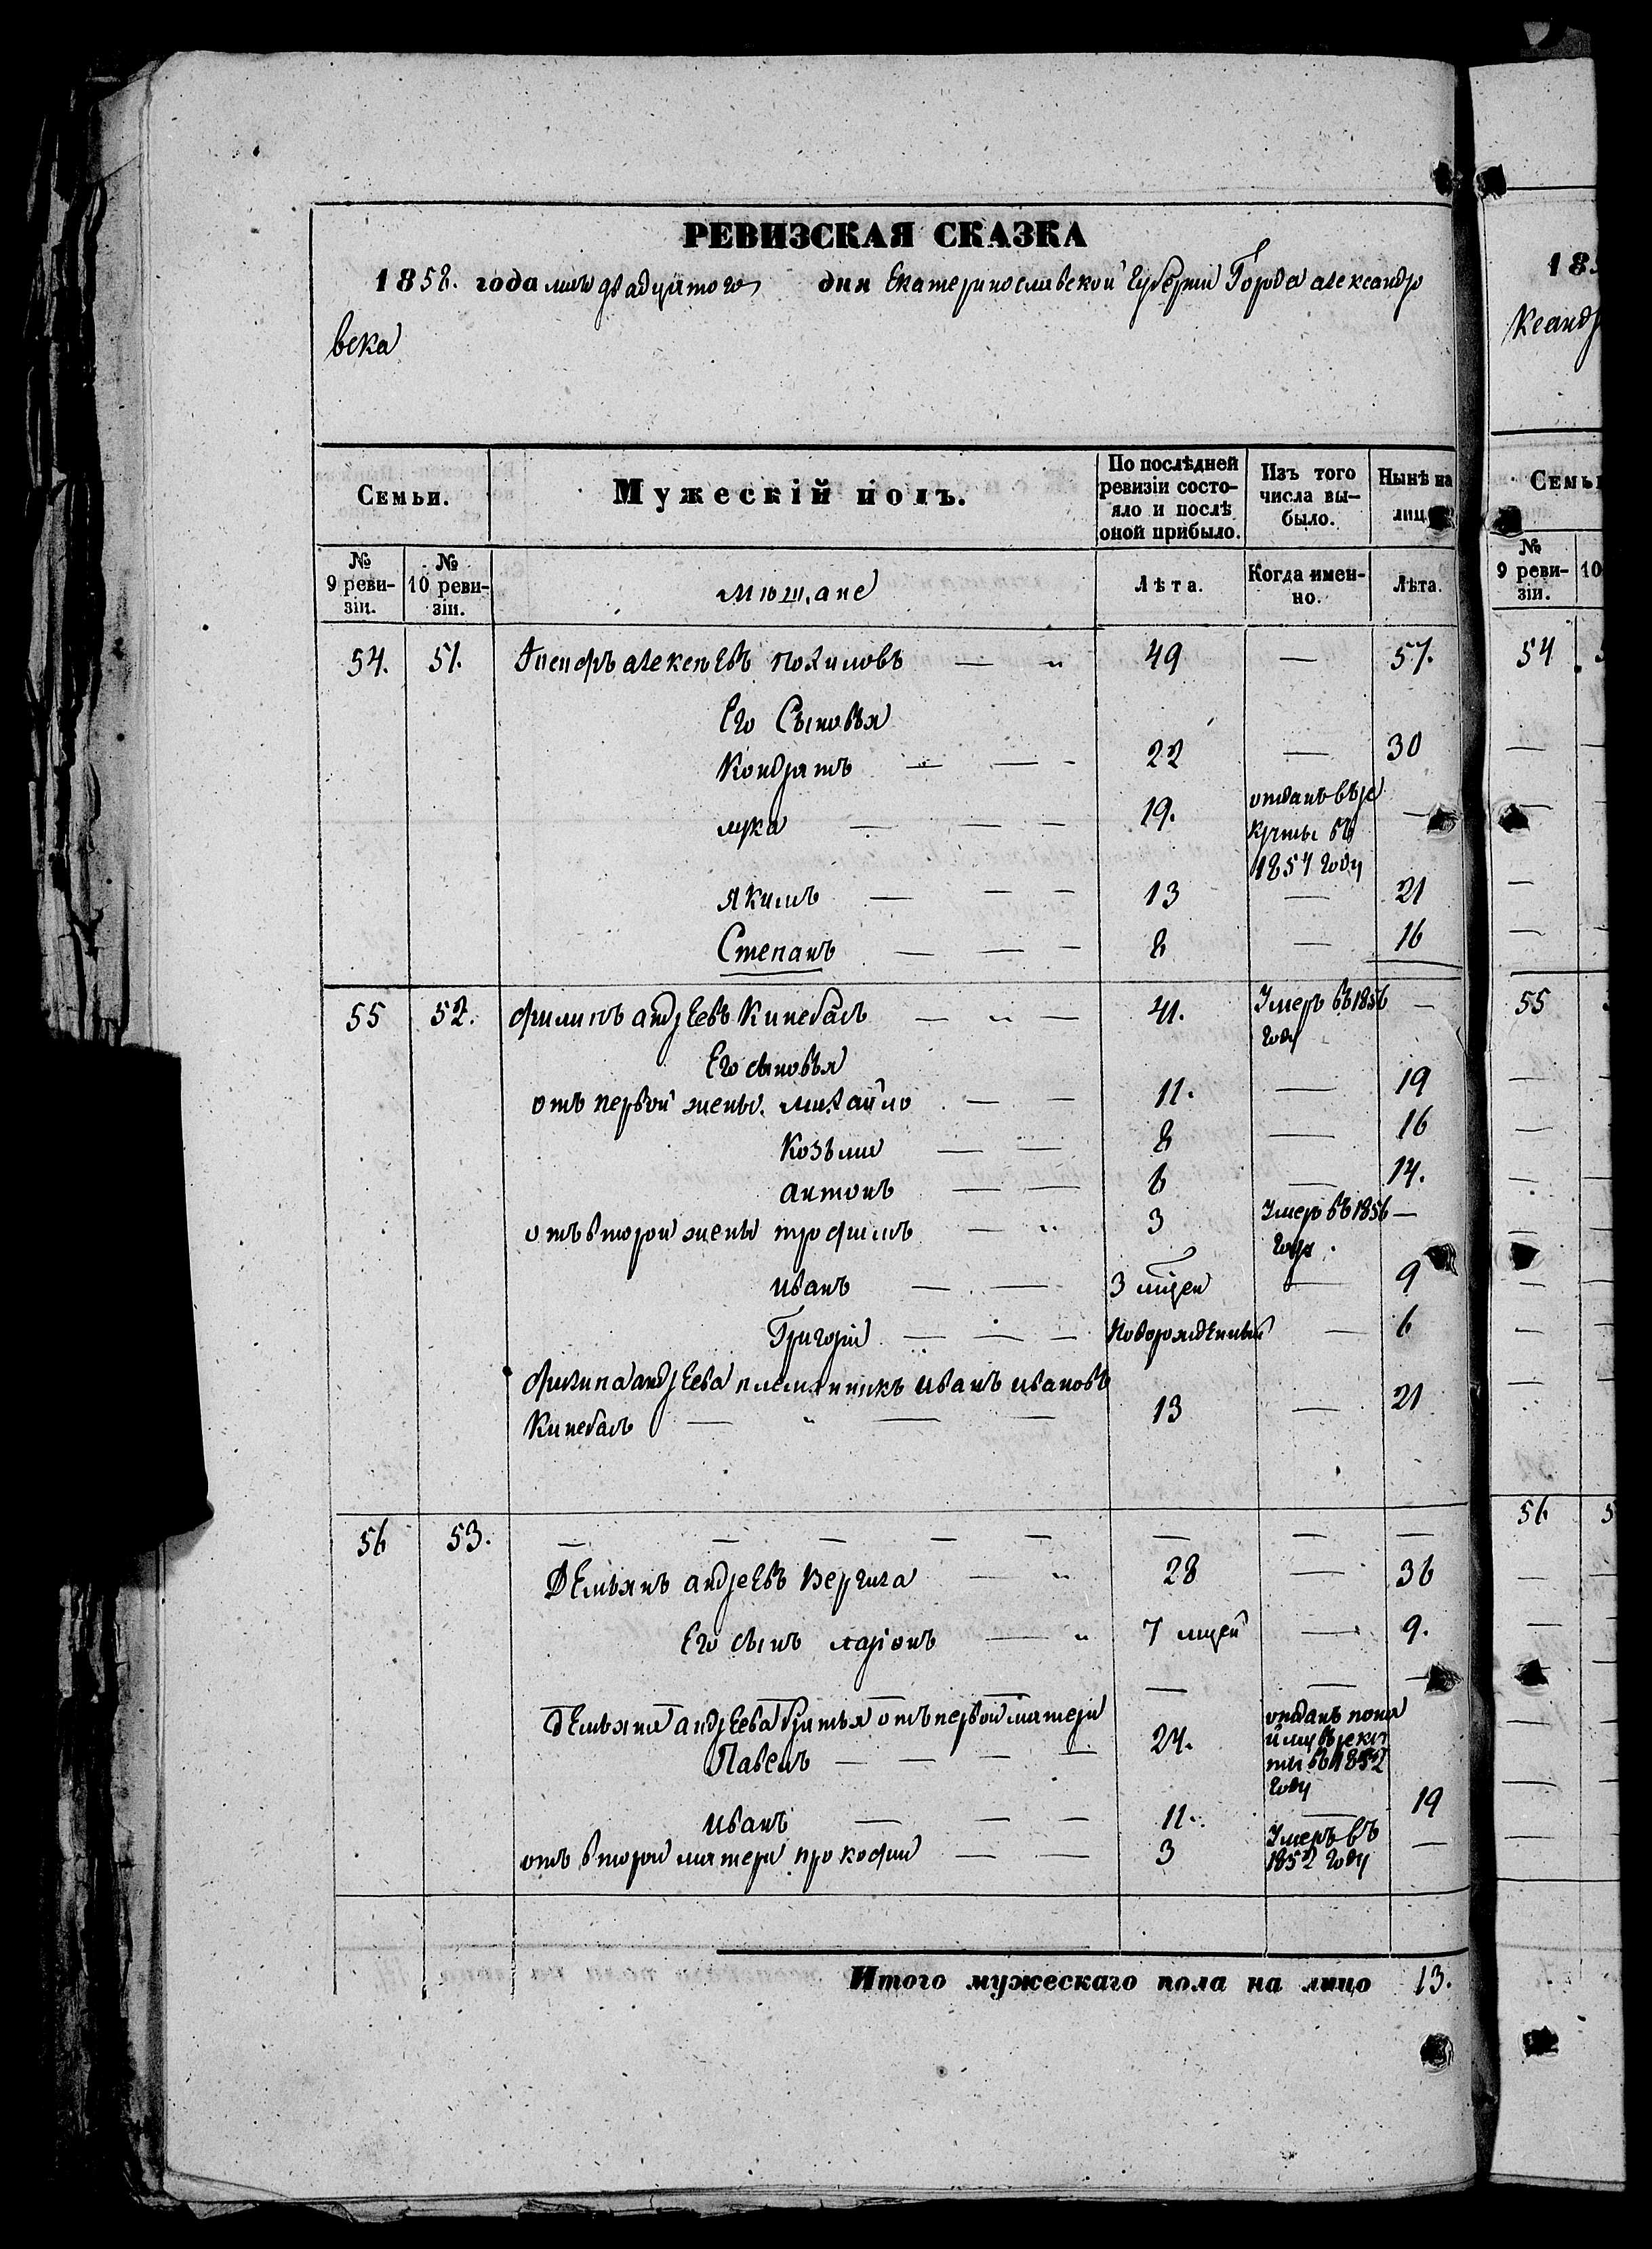 РЕВИЗСКАЯ СКАЗКА
1858. года мая двадцятого дня Екатеринославской Губерніи Города александро
века
Семьи. Мужескій полъ. По послѣдней ревизіи состояло и послѣ оной прибыло. Изъ того числа выбыло. Нынѣ на лицо
№ 9 ревизіи. № 10 ревизіи. Мѣщане Лѣта. Когда именно. Лѣта.
54. 51. алексѣевъ Похиловъ — „ 49 — 57.
Его Сыновья
Кондратъ — — - 22 — 30
лука — — — 19. отданъ въ ре
круты въ
1854 году —
Якимъ — — — 13 — 21
Степанъ — — — 8 — 16
55 52. филипъ андреевъ Кинебасъ — „ — 41. Умеръ въ 1856
году —
Его сыновья
отъ первой жены. михайло — — 11. — 19
Козьма — — 8 — 16
антонъ — — 6 — 14.
отъ второй жены трофимъ — „ 3 Умеръ въ 1856
года. —
иванъ — — 3 мцеи — 9
Григорій — — — Новорожденный — 6
филипа андреева племянникъ иванъ ивановъ
Кинебасъ — „ — — 13 — 21
56 53. — — — — — — — —
Демьянъ андреевъ Вергила — „ 28 — 36
Его сынъ ларіонъ — „ 7 мцей — 9.
— — —
Демьяна андреева братья отъ первой матери
Павелъ — — — — 24. отданъ пона
йму въ рекр
ты въ 1852
году
иванъ — — — 11. — 19
отъ второй матери прокофій — — 3 Умеръ въ
1852 году —
Итого мужескаго пола на лицо 13.
185
ксандр
Семьи
№ 9 ревизіи. 10
54
55
56 5